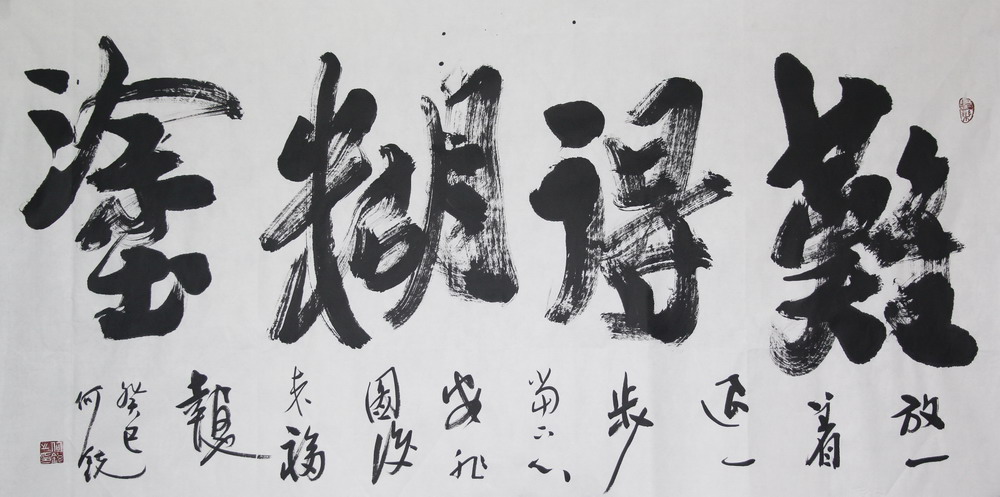 難得糊塗
放一
着
退一
步
當下心
安非
圖後
来福
報
癸巳
何